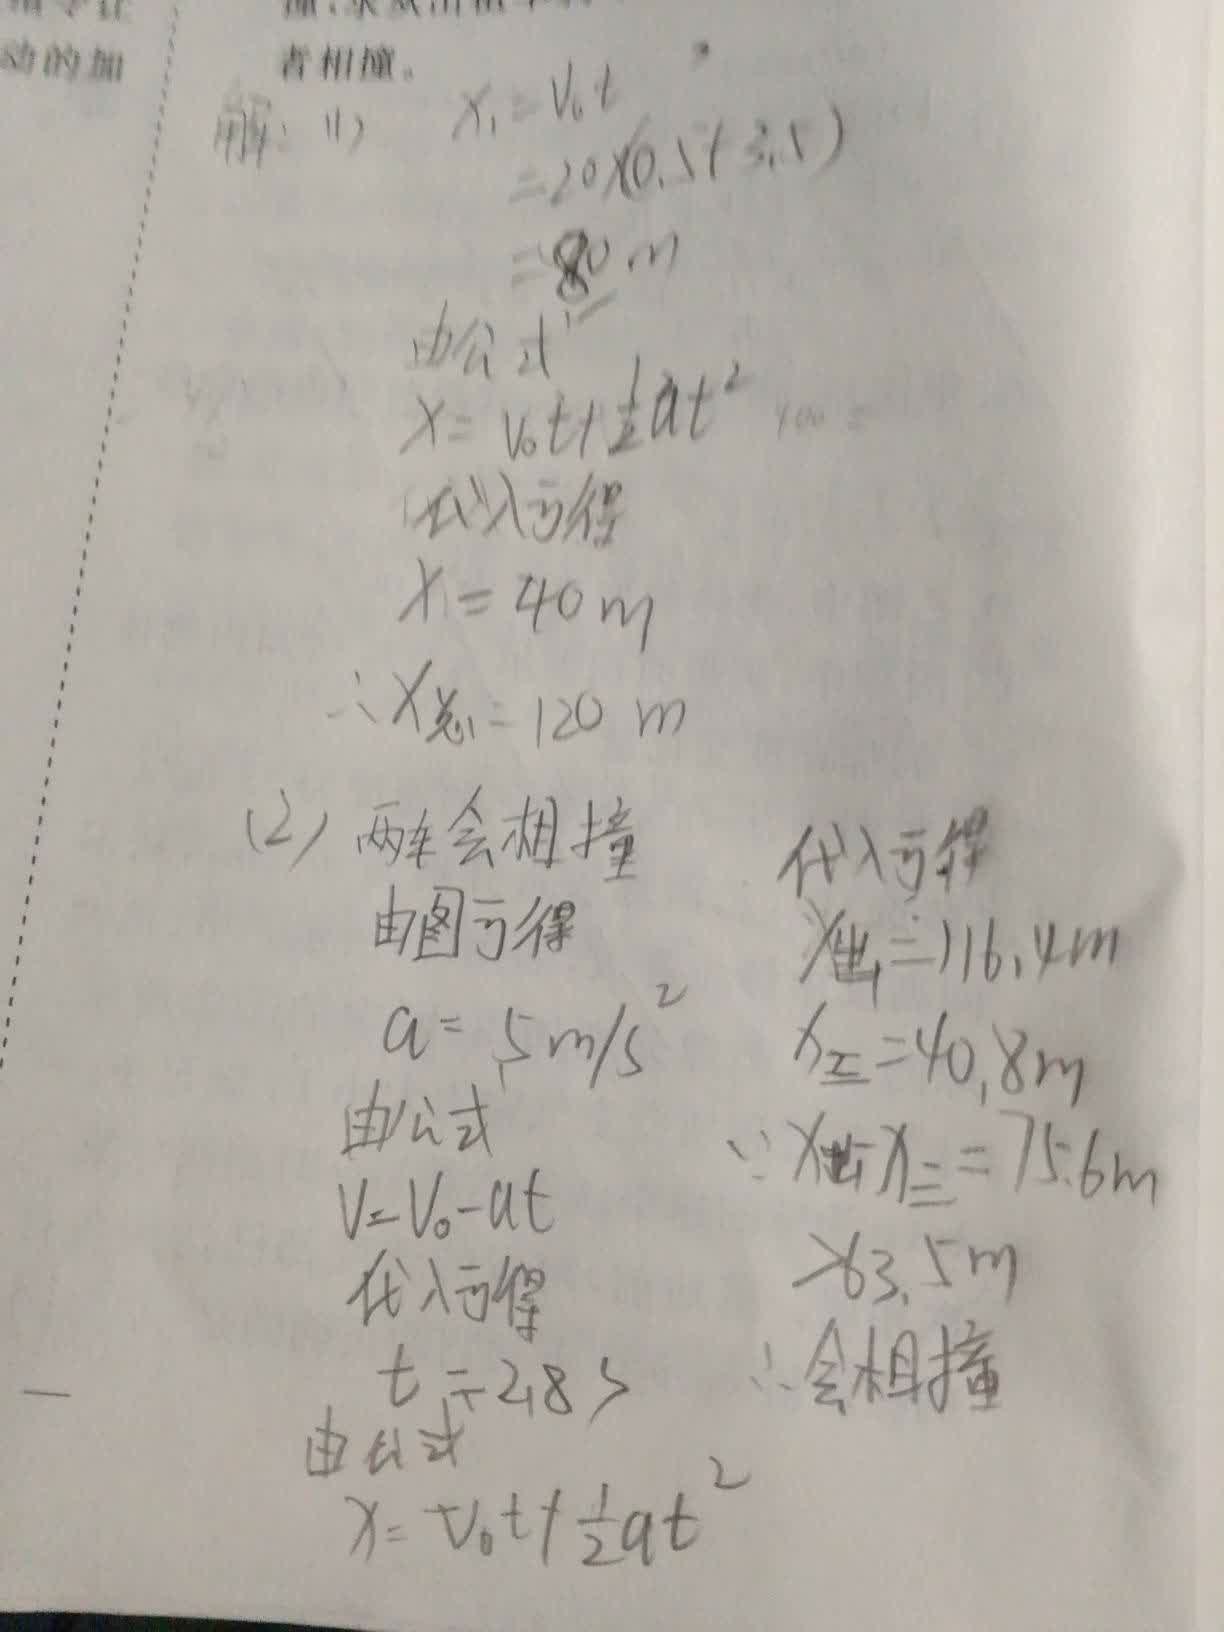 动的加
者相撞。
解:(1) X₁=V₀t
=20×(0.5+3.5)
=80m
由公式
X=V₀t+½at²
代入可得
X₁=40m
∴X总₁=120m
(2)两车会相撞
由图可得
a=5m/s²
由公式
V=V₀-at
代入可得
t=2.8s
由公式
X=V₀t+½at²
代入可得
=116.4m
=40.8m
=75.6m
>63.5m
∴会相撞